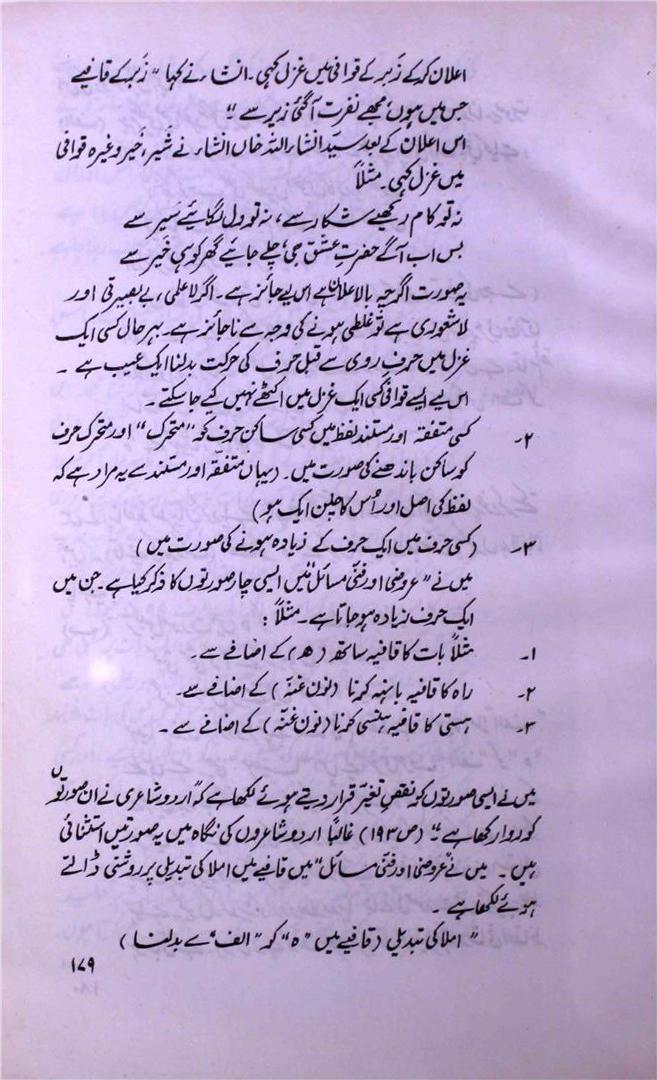 اعلان کر کے زَبر کے قوافی میں غزل کہی۔ انشاء نے کہا "زَبر کے قافیے
جس میں ہوں مجھے نفرت آگئی زیر سے"
اس اعلان کے بعد سیّد انشاء اللہ خاں انشاء نے سَیر، خَیر وغیرہ قوافی
میں غزل کہی۔ مثلاً
نہ تو کام رکھیے شکار سے، نہ تو دل لگائیے سَیر سے
بس اب آگے حضرتِ عشق جی، چلے جائیے گھر کو ہی خَیر سے
یہ صورت اگرچہ بالاعلان ہے اس لیے جائز ہے۔ اگر لاعلمی، بے بصیرتی اور
لاشعوری ہے تو غلطی ہونے کی وجہ سے ناجائز ہے۔ بہرحال کسی ایک
غزل میں حرفِ روی سے قبل حرف کی حرکت بدلنا ایک عیب ہے۔
اس لیے ایسے قوافی کسی ایک غزل میں اکٹھے نہیں کیے جاسکتے۔
۲۔ کسی متفقہ اور مستند لفظ میں کسی ساکن حرف کو "متحرک" اور متحرک حرف
کو ساکن باندھنے کی صورت میں۔ (یہاں متفقہ اور مستند سے یہ مراد ہے کہ
لفظ کی اصل اور اُس کا چلن ایک ہو)
۳۔ (کسی حرف میں ایک حرف کے زیادہ ہونے کی صورت میں)
میں نے "عروضی اور فنی مسائل" میں ایسی چار صورتوں کا ذکر کیا ہے۔ جن میں
ایک حرف زیادہ ہو جاتا ہے۔ مثلاً:
۱۔ مثلاً بات کا قافیہ ساتھ (ھ) کے اضافے سے۔
۲۔ راہ کا قافیہ بانہہ کرنا (نون غنّہ) کے اضافے سے۔
۳۔ بستی کا قافیہ ہنسی کرنا (نون غنّہ) کے اضافے سے۔
میں نے ایسی صورتوں کو نقصِ تغیّر قرار دیتے ہوئے لکھا ہے کہ "اردو شاعری نے ان صورتوں
کو روا رکھا ہے۔" (ص ۱۹۳) غالباً اردو شاعروں کی نگاہ میں یہ صورتیں استثنائی
ہیں۔ میں نے "عروضی اور فنی مسائل" میں قافیے میں املا کی تبدیلی پر روشنی ڈالتے
ہوئے لکھا ہے۔
"املا کی تبدیلی (قافیے میں "ہ" کو "الف" سے بدلنا)
۱۷۹